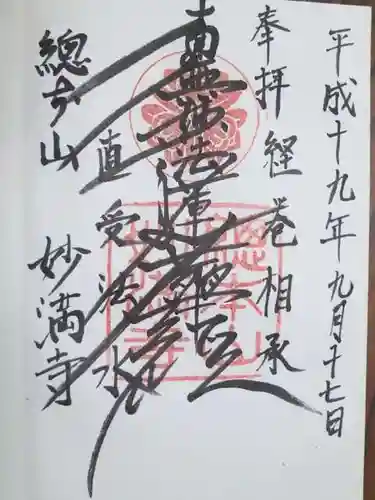 平成十九年九月十七日
奉拝 経巻相承
南無妙法蓮華経
直受法水
總本山
妙満寺
總本山妙満寺